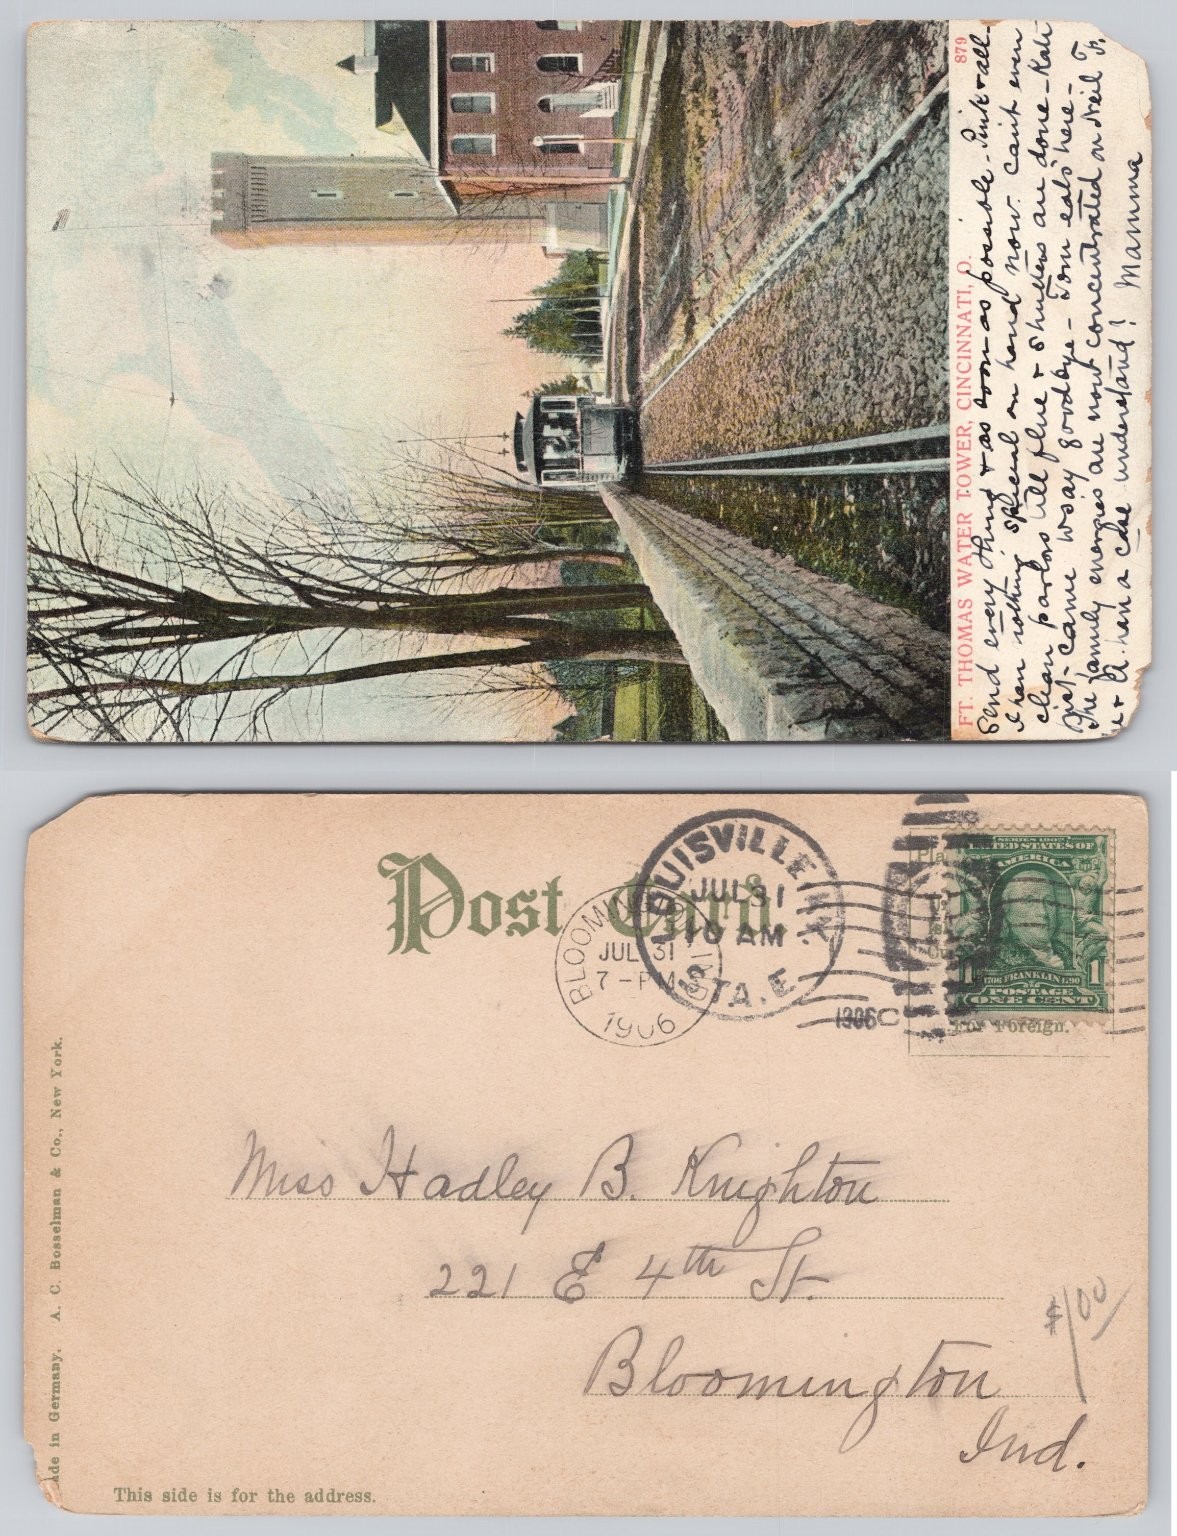 FT. THOMAS WATER TOWER, CINCINNATI, O. 879
Send every thing & as soon as possible - Pink & all -
I have nothing special on hand now. Can't even
clean parlors till flue & shutters are done - Kate
Just came to say goodbye - Tom eats here -
The family energies are now concentrated on Neil F.
& have a care understand! Mamma
Post Card.
BLOOMINGTON IND.
JUL 31
7 - PM
1906
LOUISVILLE KY.
JUL 31
10 AM
STA. E.
1906
SERIES 1902
UNITED STATES OF
AMERICA
1706 FRANKLIN 1790
1 POSTAGE 1
ONE CENT
For Foreign.
Miss Hadley B. Knighton
221 E 4th St.
Bloomington
Ind.
$1.00
ade in Germany. A. C. Bosselman & Co., New York.
This side is for the address.